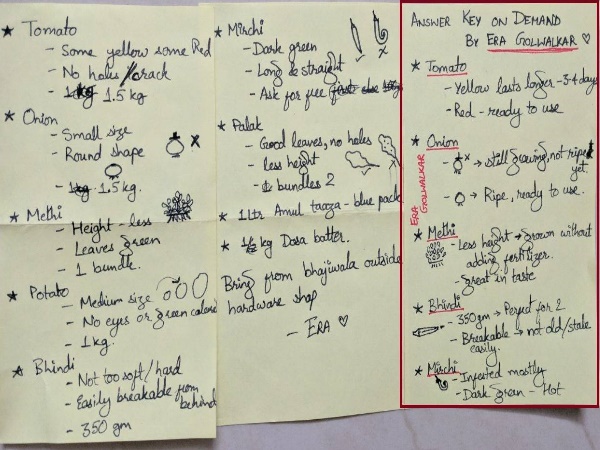 ★ Tomato
- Some yellow some Red
- No holes / crack
- 1.5 kg
★ Onion
- Small size
- Round shape
- 1.5 kg.
★ Methi
- Height - less
- Leaves green
- 1 bundle.
★ Potato
- Medium size
- No eyes or green colored
- 1 kg.
★ Bhindi
- Not too soft / hard
- Easily breakable from behind
- 350 gm
★ Mirchi
- Dark green
- Long & straight
- Ask for free
★ Palak
- Good leaves, no holes
- less height
- bundles 2
★ 1 ltr Amul taaza - blue pack
★ kg Dosa batter.
Bring from bhajiwala outside
hardware shop
- ERA ♡
ANSWER KEY ON DEMAND
BY ERA GOLWALKAR ♡
★ Tomato
- Yellow lasts longer - 3-4 days
- Red - ready to use
★ Onion
- x → still growing, not ripe
yet.
- → Ripe, ready to use.
ERA
GOLWALKAR
★ Methi
- Less height → grown without
adding fertilizer.
- great in taste
★ Bhindi
- 350gm → Perfect for 2
- Breakable → not old/stale
easily.
★ Mirchi
- Infected mostly
- Dark green - Hot